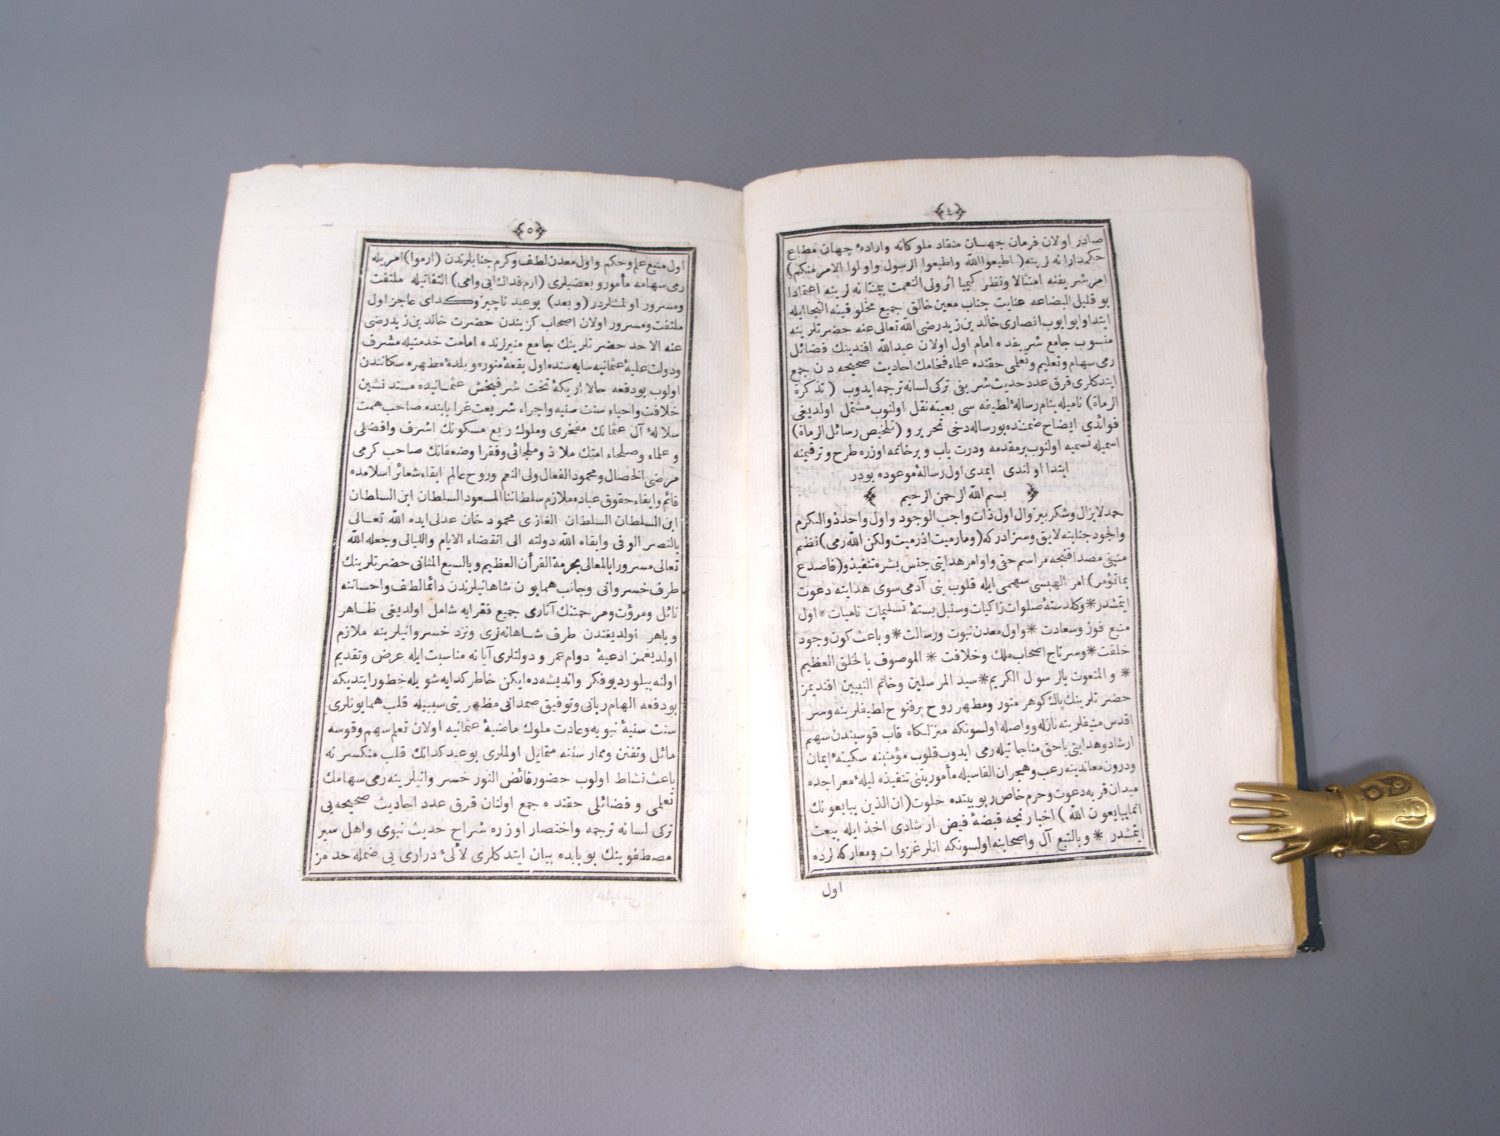 ٤
صادر اولان فرمان جهان منقاد ملوكانه واراده‌ٔ جهان مطاع
حكمدارانه لرينه (اطيعوا الله واطيعوا الرسول واولوا الامر منكم)
امر شريفنه امتثالا ونظر كيميا اثر ولى النعمت بيمننانه لرينه اعتمادا
بو قليل البضاعه عنايت جناب معين خالق جميع مخلوقينه التجا ايله
ابتدا وابو ايوب انصارى خالد بن زيد رضى الله تعالى عنه حضرتلرينه
منسوب جامع شريفده امام اول اولان عبد الله افندينك فضائل
رمى سهام وتعليم وتعلمى حقنده علماء فخامك احاديث صحيحه دن جمع
ايتدكلرى قرق عدد حديث شريفى تركى لسانه ترجمه ايدوب (تذكرة
الرماة) ناميله بنام رساله‌ٔ لطيفه سى بعينه نقل اولنوب مشتمل اولديغى
فوائدى ايضاح ضمننده بو رساله دخى تحرير و (تلخيص رسائل الرماة)
اسميله تسميه اولنوب بر مقدمه ودرت باب و بر خاتمه اوزره طرح وترقيمنه
ابتدا اولندى ايمدى اول رساله‌ٔ موعوده بودر
بسم الله الرحمن الرحيم
حمد لايزال وشكر بيزوال اول ذات واجب الوجود واول واحد ذو الكرم
والجود جنابنه لايق وسزادر كه (وما رميت اذ رميت ولكن الله رمى) نظم
متينى مصداقنجه مراسم حق واوامر هدايتى جنس بشره تنفيذ و (فاصدع
بما تؤمر) امر الهيسى سهمى ايله قلوب بنى آدمى سوى هدايته دعوت
ايتمشدر * وكلدسته‌ٔ صلوات زاكيات وسنبل بسته‌ٔ تسليمات ناميات * اول
منبع فوز وسعادت * واول معدن نبوت ورسالت * و باعث كون وجود
خلقت * وسرتاج اصحاب ملك وخلافت * الموصوف بالخلق العظيم
* و المنعوت بالرسول الكريم * سيد المرسلين وخاتم النبيين افنديمز
حضرتلرينك پاك كوهر منور ومطهر روح پرفتوح لطيفلرينه وسر
اقدس منيفلرينه نازله وواصله اولسونكه منزلكاه قاب قوسيندن سهم
ارشاد وهدايتى ياحق مناجاتيله رمى ايدوب قلوب مؤمنينه سكينه‌ٔ ايمان
ودرون معاندينه رعب وهيجران القاسيله مأموريتنى تنفيذه ليله‌ٔ معراجده
ميدان قربه دعوت وحرم خاص ربوبيتده خلوت (ان الذين يبايعونك
انما يبايعون الله) اخبارنجه قبضه‌ٔ فيض ارشادى اخذ ايله بيعت
ايتمشدر * و بالتبع آل واصحابنه اولسونكه انلر غزوات ومعاركه لرده
اول
٥
اول منبع علم وحكم واول معدن لطف وكرم جنابلرندن (ارموا) امريله
رمى سهامه مأمور و بعضيلرى (ارم فداك ابى وامى) التفاتيله ملتفت
ومسرور اولمشلردر (و بعد) بو عبد ناچيز وكداى عاجز اول
ملتفت ومسرور اولان اصحاب كزيندن حضرت خالد بن زيد رضى
عنه الاحد حضرتلرينك جامع منيرلرنده امامت خدمتيله مشرف
ودولت عليه‌ٔ عثمانيه سايه سنده اول بقعه‌ٔ منوره و بلده‌ٔ مطهره سكانندن
اولوب بو دفعه حالا اريكه‌ٔ تخت شرفبخش عثمانيده مسند نشين
خلافت واحياء سنت سنيه واجراء شريعت غرا بابنده صاحب همت
سلاله‌ٔ آل عثمانك مفخرى وملوك ربع مسكونك اشرف وافضلى
و علماء وصلحاء امتك ملاذ وملجائى وفقرا وضعفانك صاحب كرمى
مرضى الخصال ومحمود الفعال ولى النعم وروح عالم ابقاء شعائر اسلامده
قائم وايفاء حقوق عباده ملازم سلطاننا المسعود السلطان ابن السلطان
ابن السلطان السلطان الغازى محمود خان عدلى ايده الله تعالى
بالنصر الوفى وابقاه الله دولته الى انقضاء الايام والليالى وجعله الله
تعالى مسرورا بالمعالى بحرمة القرآن العظيم و بالسبع المثانى حضرتلرينك
طرف خسروانى وجانب همايون شاهانيلرندن دائما لطف واحساننه
نائل ومروت ومرحمتنك آثارى جميع فقرايه شامل اولديغى ظاهر
و باهر اولديغندن طرف شاهانه لرى ونزد خسروانيلرينه ملازم
اولديغمز ادعيه‌ٔ دوام عمر و دولتلرى آيا نه مناسبت ايله عرض وتقديم
اولنه بيلور ديو فكر وانديشه ده ايكن خاطر كدايه شويله خطور ايتديكه
بو دفعه الهام ربانى وتوفيق صمدانى مظهريتى سببيله قلب همايونلرى
سنت سنيه‌ٔ نبويه وعادت ملوك ماضيه‌ٔ عثمانيه اولان تعلم سهم وقوسه
مائل وتفنن وممارسنه متمايل اولملرى بو عبد كدانك قلب منكسرنه
باعث نشاط اولوب حضور فائض النور خسروانيلرينه رمى سهامك
تعلمى و فضائلى حقنده جمع اولنان قرق عدد احاديث صحيحه يى
تركى لسانه ترجمه واختصار اوزره شراح حديث نبوى واهل سير
مصطفوينك بو بابده بيان ايتدكلرى لآلئ درارى بى ضمله حد مز